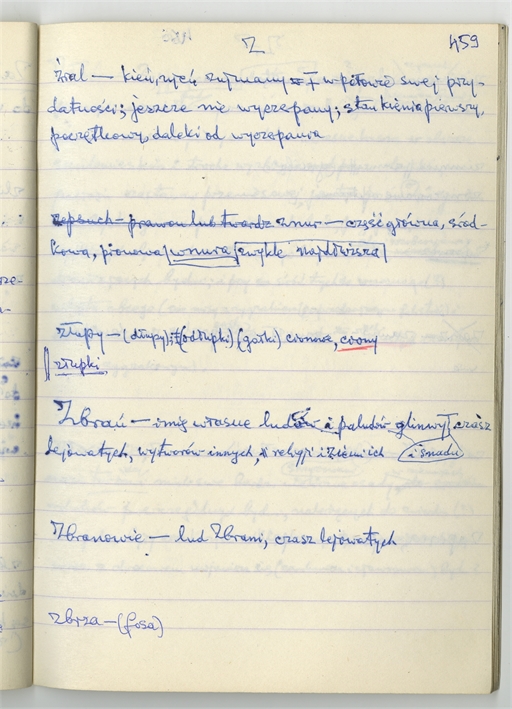 Z 459
żral — kień, rżeń zużmany w połowie swej przy-
datności; jeszcze nie wyczepany; stan kienia pierwszy,
początkowy, daleki od wyczepania
prawou lub twardz znur — część główna, środ-
kowa, pionowa wnura zwykle najdłuższa
złupy — (dłupy); (odłupki) (gałki) cionowe, coony
złupki
Zbrań — imię własne ludów i paludów glinwyT, czasz
lejowatych, wytworów innych, religji i ziemi ich i snadu
Zbranowie — lud Zbrani, czasz lejowatych
zbrza — (fosa)